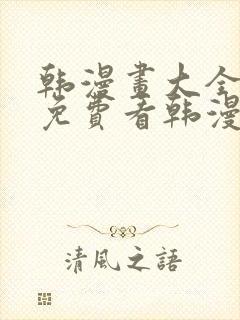 韩漫畫大全
免費看韩漫
清風之語